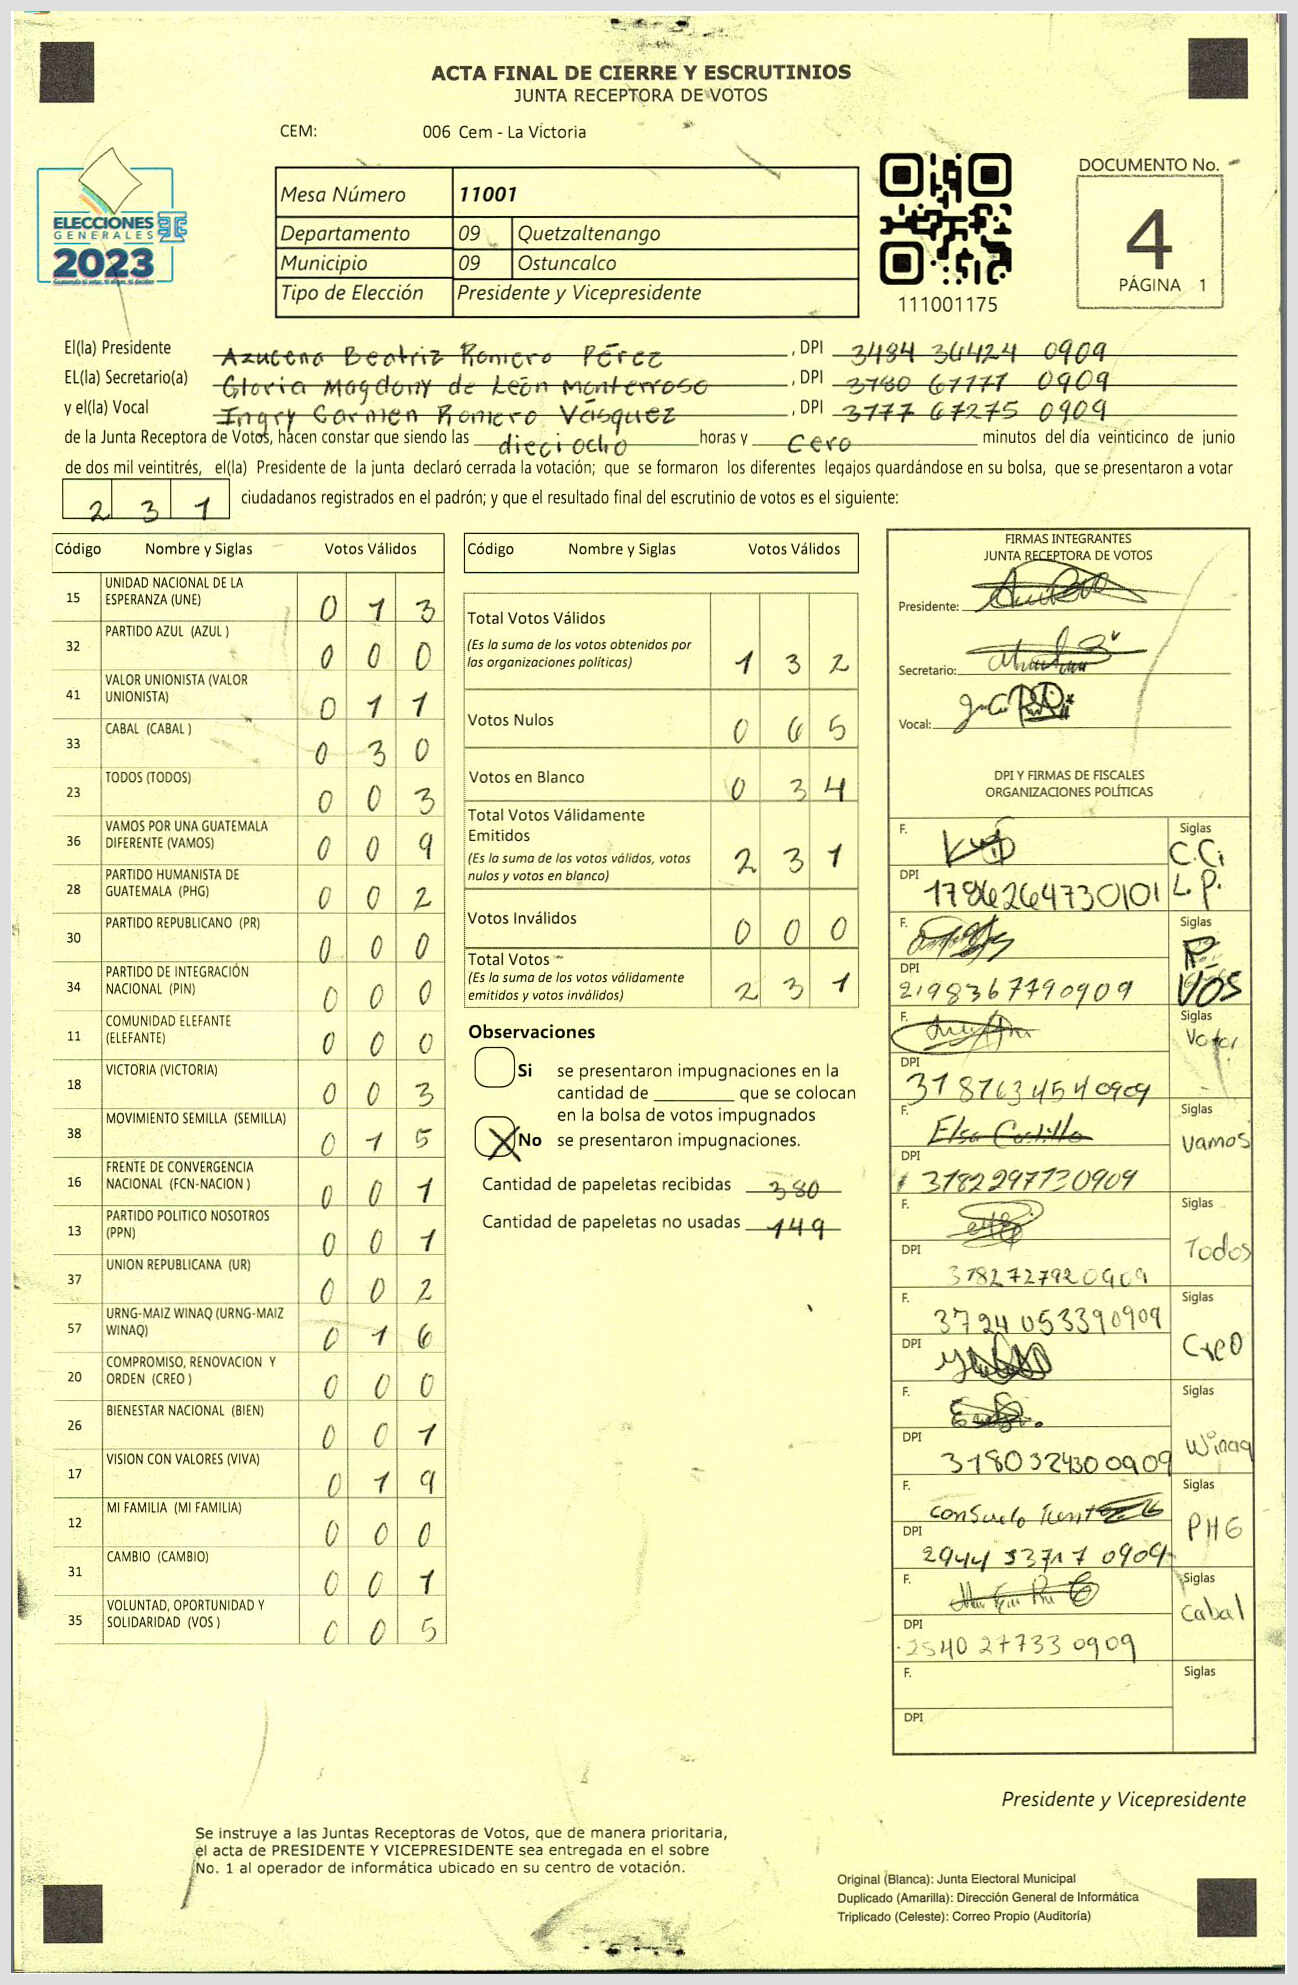 ACTA FINAL DE CIERRE Y ESCRUTINIOS
JUNTA RECEPTORA DE VOTOS
CEM: 006 Cem - La Victoria
ELECCIONES
GENERALES
2023
Mesa Número 11001
Departamento 09 Quetzaltenango
Municipio 09 Ostuncalco
Tipo de Elección Presidente y Vicepresidente
111001175
DOCUMENTO No.
4
PÁGINA 1
El(la) Presidente Azucena Beatriz Romero Pérez , DPI 3484 36424 0909
EL(la) Secretario(a) Gloria Magdony de León Monterroso , DPI 3780 67777 0909
y el(la) Vocal Ingry Carmen Romero Vásquez , DPI 3777 67275 0909
de la Junta Receptora de Votos, hacen constar que siendo las dieciocho horas y cero minutos del día veinticinco de junio
de dos mil veintitrés, el(la) Presidente de la junta declaró cerrada la votación; que se formaron los diferentes legajos guardándose en su bolsa, que se presentaron a votar
231 ciudadanos registrados en el padrón; y que el resultado final del escrutinio de votos es el siguiente:
Código Nombre y Siglas Votos Válidos
15 UNIDAD NACIONAL DE LA ESPERANZA (UNE) 0 1 3
32 PARTIDO AZUL (AZUL ) 0 0 0
41 VALOR UNIONISTA (VALOR UNIONISTA) 0 1 1
33 CABAL (CABAL ) 0 3 0
23 TODOS (TODOS) 0 0 3
36 VAMOS POR UNA GUATEMALA DIFERENTE (VAMOS) 0 0 9
28 PARTIDO HUMANISTA DE GUATEMALA (PHG) 0 0 2
30 PARTIDO REPUBLICANO (PR) 0 0 0
34 PARTIDO DE INTEGRACIÓN NACIONAL (PIN) 0 0 0
11 COMUNIDAD ELEFANTE (ELEFANTE) 0 0 0
18 VICTORIA (VICTORIA) 0 0 3
38 MOVIMIENTO SEMILLA (SEMILLA) 0 1 5
16 FRENTE DE CONVERGENCIA NACIONAL (FCN-NACION ) 0 0 1
13 PARTIDO POLITICO NOSOTROS (PPN) 0 0 1
37 UNION REPUBLICANA (UR) 0 0 2
57 URNG-MAIZ WINAQ (URNG-MAIZ WINAQ) 0 1 6
20 COMPROMISO, RENOVACION Y ORDEN (CREO ) 0 0 0
26 BIENESTAR NACIONAL (BIEN) 0 0 1
17 VISION CON VALORES (VIVA) 0 1 9
12 MI FAMILIA (MI FAMILIA) 0 0 0
31 CAMBIO (CAMBIO) 0 0 1
35 VOLUNTAD, OPORTUNIDAD Y SOLIDARIDAD (VOS ) 0 0 5
Código Nombre y Siglas Votos Válidos
Total Votos Válidos
(Es la suma de los votos obtenidos por
las organizaciones políticas) 1 3 2
Votos Nulos 0 6 5
Votos en Blanco 0 3 4
Total Votos Válidamente
Emitidos
(Es la suma de los votos válidos, votos
nulos y votos en blanco) 2 3 1
Votos Inválidos 0 0 0
Total Votos
(Es la suma de los votos válidamente
emitidos y votos inválidos) 2 3 1
Observaciones
Si se presentaron impugnaciones en la
cantidad de ________ que se colocan
en la bolsa de votos impugnados
X No se presentaron impugnaciones.
Cantidad de papeletas recibidas 380
Cantidad de papeletas no usadas 149
FIRMAS INTEGRANTES
JUNTA RECEPTORA DE VOTOS
Presidente:
Secretario:
Vocal:
DPI Y FIRMAS DE FISCALES
ORGANIZACIONES POLÍTICAS
F. Siglas C.C.
DPI 1786264730101 L.P.
F. Siglas
DPI 2198367790909 VOS
F. Siglas
DPI 3187634540909
F. Elsa Castillo Siglas Vamos
DPI 3182297730909
F. Siglas Todos
DPI 3182727920909
F. 3724053390909 Siglas CreO
DPI
F. Siglas Winaq
DPI 3180324300909
F. Consuelo Siglas PHG
DPI 2944 53717 0909
F. Siglas Cabal
DPI 2540 27733 0909
F. Siglas
DPI
Presidente y Vicepresidente
Se instruye a las Juntas Receptoras de Votos, que de manera prioritaria,
el acta de PRESIDENTE Y VICEPRESIDENTE sea entregada en el sobre
No. 1 al operador de informática ubicado en su centro de votación.
Original (Blanca): Junta Electoral Municipal
Duplicado (Amarilla): Dirección General de Informática
Triplicado (Celeste): Correo Propio (Auditoría)